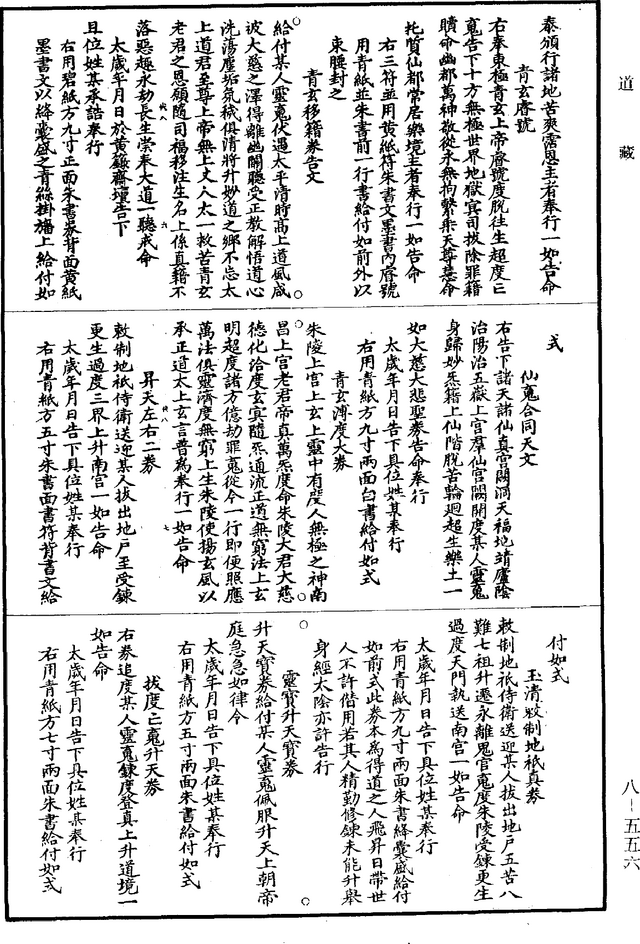 道藏
泰頒行諸地苦爽霑恩主者奉行一如告命
青玄睿號
右奉東極青玄上帝睿號度脫往生超度亡
䰟告下十方無極世界地獄冥司拔除罪籍
贖命幽都萬神敬從永無拘繫乘天尊慈命
托質仙都常居樂境主者奉行一如告命
右三符並用黃紙符朱書文墨書內睿號
用青紙並朱書前一行書給付如前外以
束腰封之
青玄移籍券告文
給付某人靈䰟伏遇太平清時高上道風咸
被大慈之澤得離幽關聽受正教解悟道心
洗蕩塵垢氣穢俱清將升妙道之鄉不忘太
上道君至尊上帝無上丈人太一救苦青玄
老君之恩願隨司福移注生名上係真籍不
落惡趣永劫長生崇奉大道一聽戒命
太歲年月日於黃籙齋壇告下
且位姓某承誥奉行
右用碧紙方九寸正面朱書券背面黃紙
墨書文以絳囊盛之青絲掛旛上給付如
式
仙䰟合同天文
右告下諸天諸仙真宮闕洞天福地靖廬陰
治陽治五嶽上宮羣仙宮闕開度某人靈䰟
身歸妙炁籍上仙階脫苦輪迴超生樂土一
如大慈大悲聖券告命奉行
太歲年月日告下具位姓某奉行
右用青紙方九寸兩面白書給付如式
青玄溥度大券
朱陵上宮上玄上靈中有度人無極之神南
昌上宮老君帝真萬炁度命朱陵大君大慈
德化洽度玄冥隨炁通流正道無窮法上玄
明超度諸方億劫罪䰟從今一行即便照應
萬法俱靈濟度無窮上生朱陵使揚玄風以
承正道太上玄言普為奉行一如告命
昇天左右二券
敕制地祇侍衛送迎某人拔出地戶王受鍊
更生過度三界上升南宮一如告命
太歲年月日告下具位姓某奉行
右用青紙方五寸朱書面書符背書文給
付如式
玉清敕制地祇真券
敕制地祇侍衛送迎某人拔出地戶五苦八
難七祖升遷永離鬼官䰟度朱陵受鍊更生
過度天門執送南宮一如告命
太歲年月日告下具位姓某奉行
右用青紙方九寸兩面朱書絳囊盛給付
如前式此券本為得道之人飛昇日帶世
人不許僭用若其人精勤修鍊未能升舉
身經太陰亦許告行
靈寶升天寶券
升天寶券給付某人靈䰟佩服升天上朝帝
庭急急如律令
太歲年月日告下具位姓某奉行
右用青紙方五寸兩面朱書給付如式
拔度亡䰟升天券
右券追度某人靈䰟鍊度登真上升道境一
如告命
太歲年月日告下具位姓某奉行
右用青紙方七寸兩面朱書給付如式
八—五五六